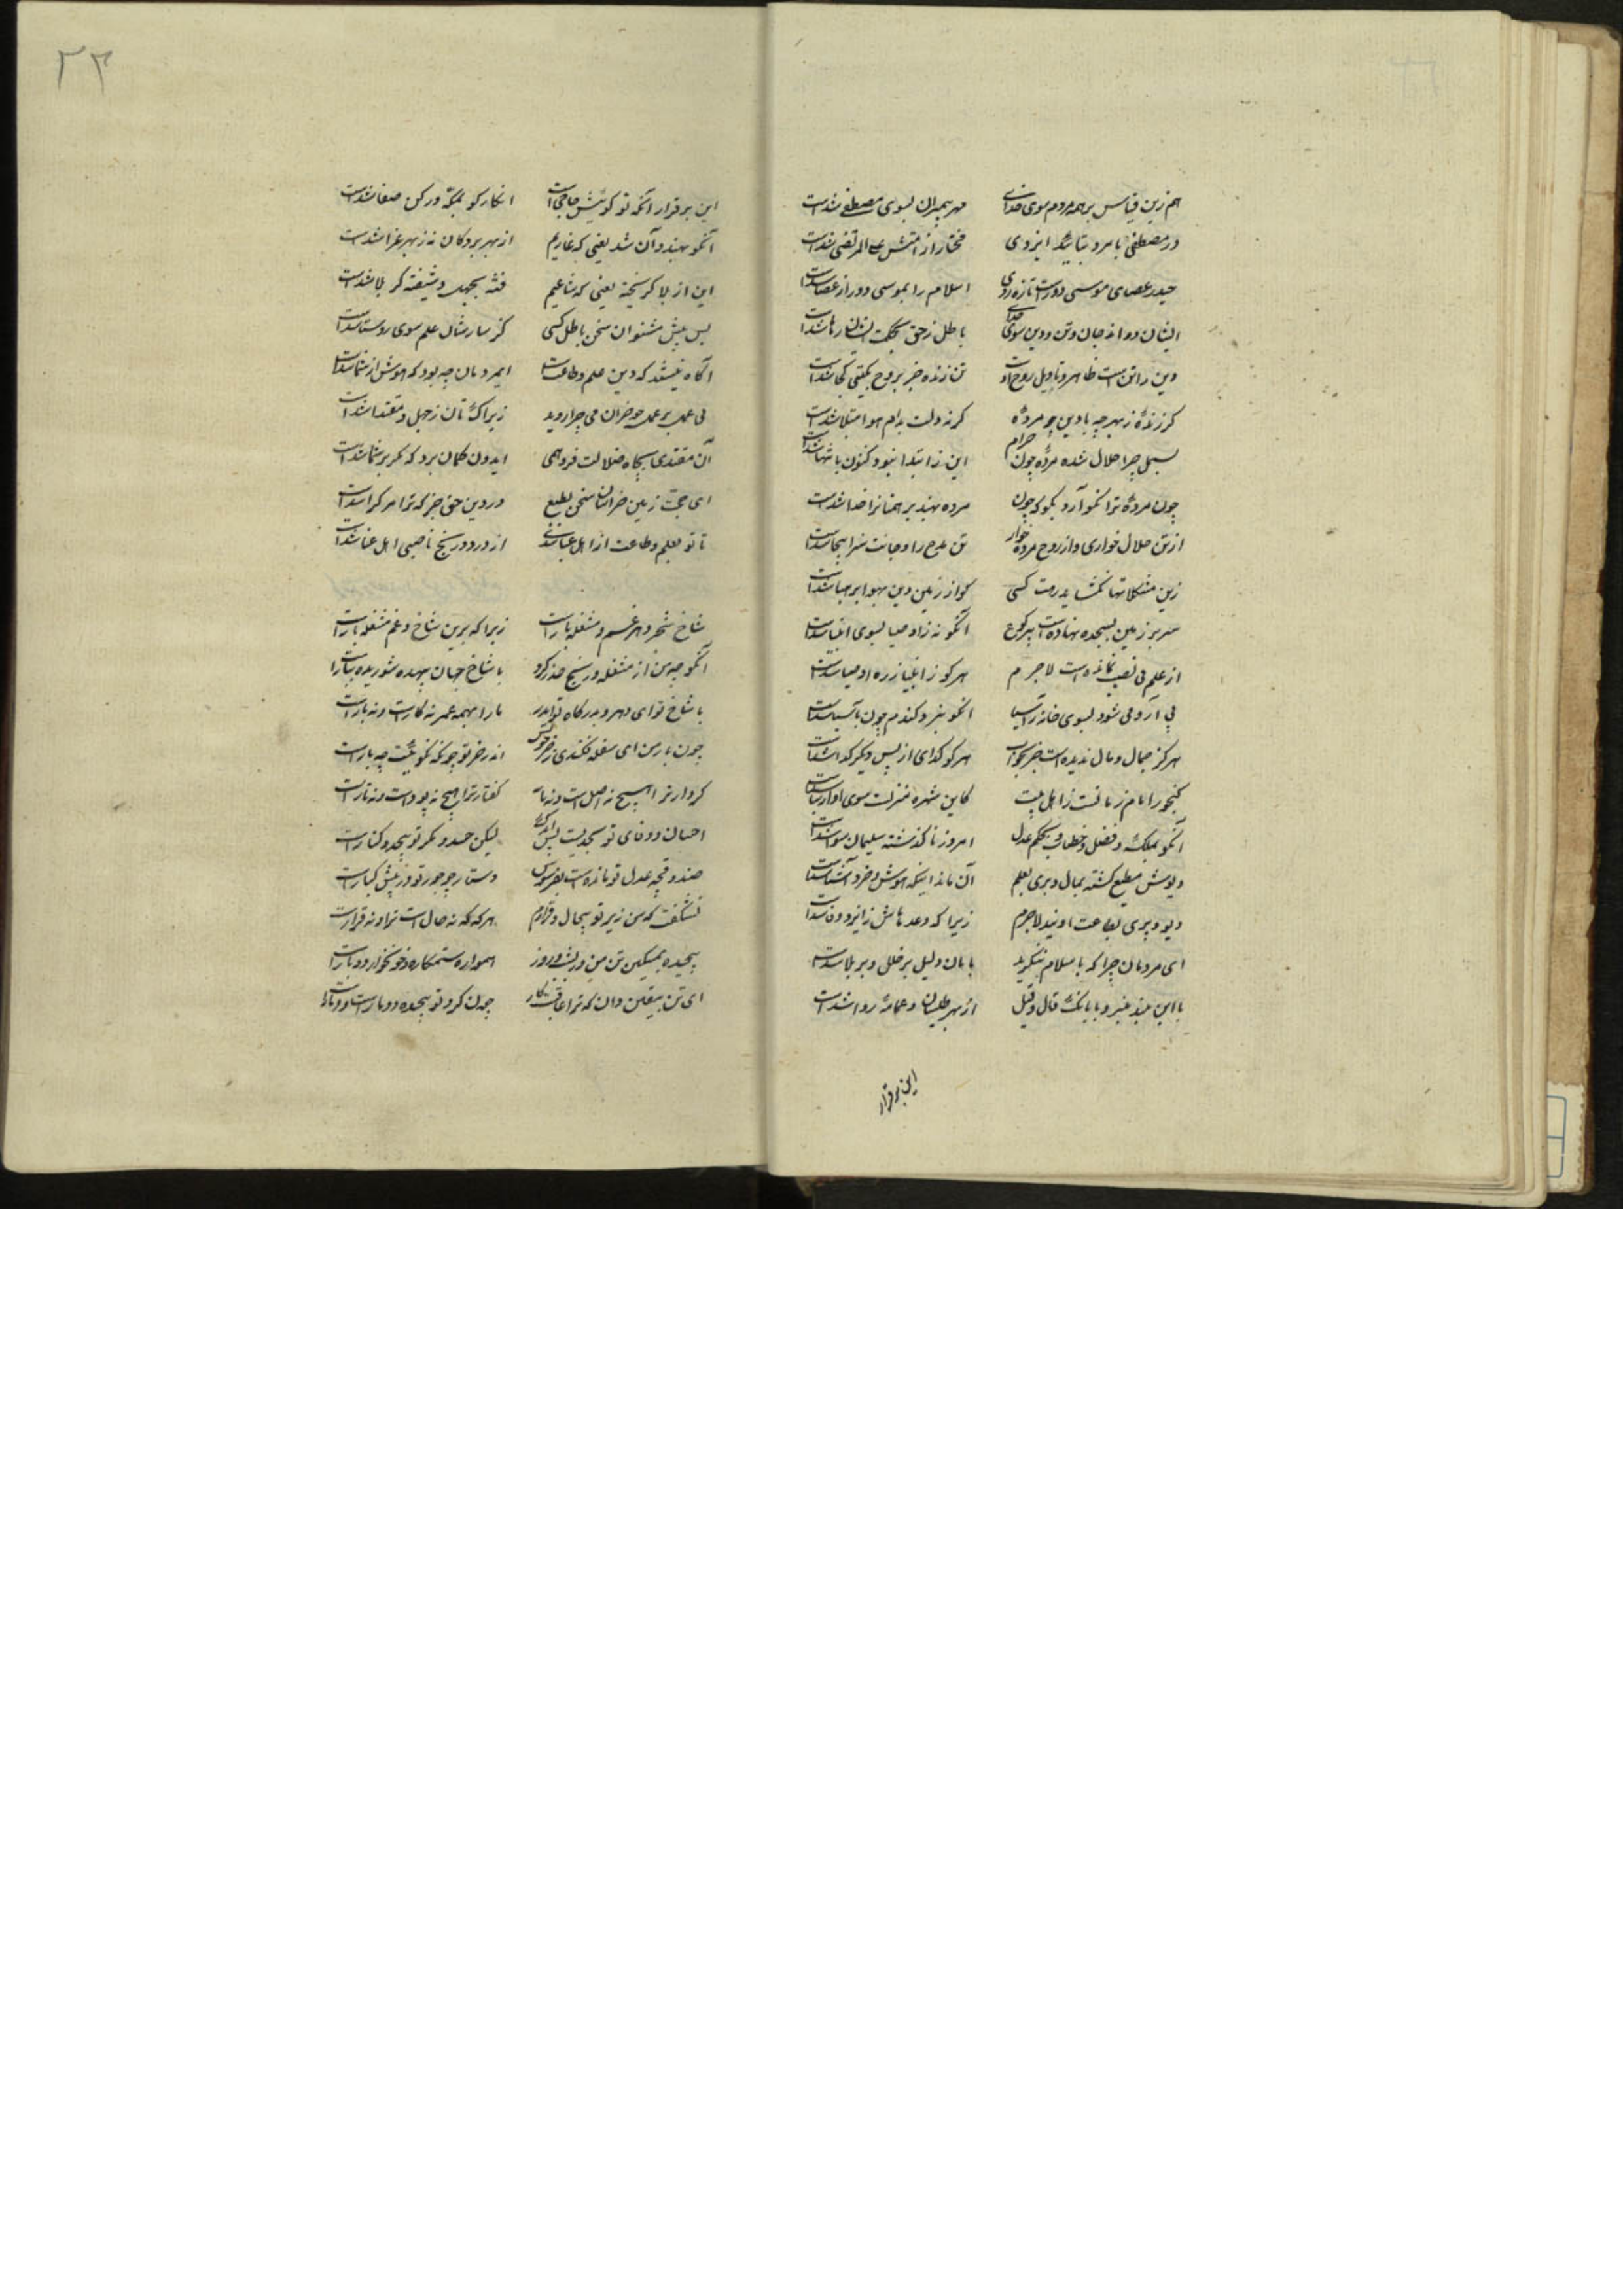 هم زین قیاس بر همه مردم سوی خدای مهر پیمبران بسوی مصطفی شدست
در مصطفی بامر و بتائید ایزدی مختار از امتش علی المرتضی شدست
حیدر عصای موسی دورست تازه روی اسلام را بموسی دور از عصا شدست
ایشان دو اند جان و تن و دین سوی خدای باطل ز حق بحکمت ایشان رها شدست
دین را تن است ظاهر و تاویل روح اوست تن زنده جز بروح بگیتی کجا شدست
گر زنده ز بهر چه با دین چو مرده گر نه دلت بدام هوا مبتلا شدست
بسمل چرا حلال شده مرده چون حرام این ز ابتدا نبود کنون بانتها شدست
چون مرده ترا نگو آرد بگو که چون مرده بهند بر همنانرا خدا شدست
از تن حلال خواری و از روح مرده خوار تن را و جانت
زین مشکلاتها نگشاید رهت کسی کو از زمین دین بهوا بر هبا شدست
سر بر زمین بسجده نهاده است بی رکوع آنکو نه ز اوصیا بسوی انبیا شدست
از علم بی نصیب نمانده است لاجرم هر کو ز انبیا ز ره اوصیا شدست
بی آرد می شود بسوی خانه ز آسیا آنکو نبرد گندم چون بآسیا شدست
هرگز جمال و مال ندیده است جز بخواب هر کو گدای از پس دیگر گدا شدست
گنجور امام زمانست ز اهل بیت کاین شهره منزلت سوی او از شدست
آنکو بملک و فضل و خطاب و بحکم عدل امروز ناگذشته سلیمان سوا شدست
دیوش مطیع گشته بمال و پری بعلم آن ماند اینکه هوش و خرد آشنا شدست
دیو و پری بطاعت اویند لاجرم زیرا که وعدهاش ز ایزد وفا شدست
ای مردمان چرا که باسلام ننگرید با مان دلیل بر خلل و بر بلا شدست
با این بلند منبر و با بانگ قال و قیل از بهر طیلسان و عمامه روا شدست
این برقرار
۳۳
این برقرار آنکه تو گوئیش حاجی است انکار کو بمکه و رکن صفا شدست
آنکو بهند و آن شد یعنی که غازیم از بهر بردگان نه ز بهر غزا شدست
این از بلا گریخته یعنی که شاعیم فتنه بجهل و شیفته کربلا شدست
بس پیش مشنو ان سخن باطل کسی کز سار مثال علم سوی روستا شدست
آگاه نیستند که دین علم و طاعتست ای مردمان چه بود که هوش از شما شدست
بی علم بر عمل چو خران می چرا روید زیرا که تان ز جهل و مقتدا شدست
آن مقتدی بچاه ضلالت فرو همی ایدون گمان برد که مگر بر سما شدست
ای حجت زمین خراسان سخن بطبع در دین حق جز که ترا مر کرا شدست
تا تو بعلم و طاعت از اهل عبا شدی از درد و رنج ناصبی اهل عنا شدست
شاخ شجر دهر غم و مشغله بارست زیرا که برین شاخ و غم مشغله بارست
آنکو چو من از مشغله و رنج حذر کرد با شاخ جهان بیهده شوریده نیارست
با شاخ تو ای دهر و بدرگاه تو اندر ما را بهمه عمر نه کارست و نه بارست
چون بار من ای سفله فکندی ز خر خویش اندر خر تو چونکه نگوئیت چه بارست
کردار ترا هیچ نه اصل است و نه مایه گفتار ترا هیچ نه پودست و نه تارست
احسان و وفای تو بحدیست بس اندک لیکن حسد و مکر تو بیحد و کنارست
صندوقچه عدل تو مانده است بطرسوس دستارچه جور تو در پیش کنارست
نشگفت که من زیر تو بیحال و قرارم هرگه که نه حال است ترا و نه قرارست
پیچیده بمسکین تن من در بشب و روز همواره ستمکاره و خونخوار دو مارست
ای تن بیقین دان که ترا عاقبت کار چون گرد تو پیچیده دو مارست و دمارست